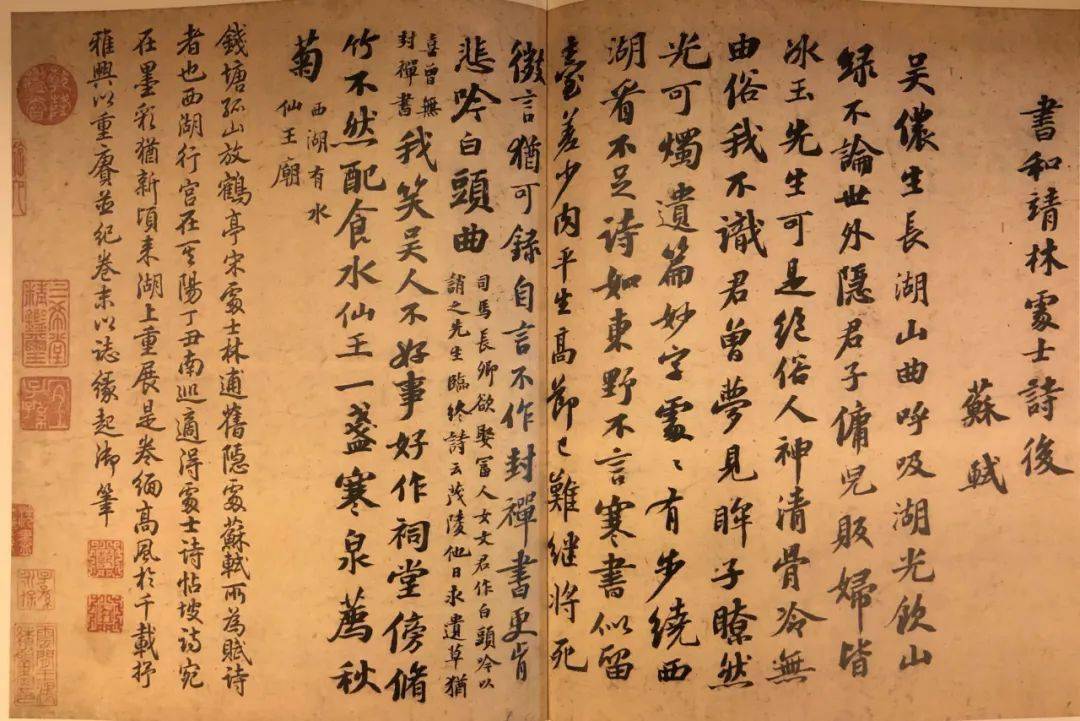 書和靖林處士詩後
蘇軾
吳儂生長湖山曲呼吸湖光飲山
緑不論世外隱君子傭兒販婦皆
冰玉先生可是絕俗人神清骨冷無
由俗我不識君曾夢見眸子瞭然
光可燭遺篇妙字處〻有步繞西
湖看不足詩如東野不言寒書似留
臺差少肉平生高節已難继將死
微言猶可録自言不作封禪書更肯
悲吟白頭曲
司馬長卿欲娶富人女文君作白頭吟以
誚之先生臨終詩云茂陵他日求遺草猶
喜曾無
封禪書
我笑吳人不好事好作祠堂傍脩
竹不然配食水仙王一盞寒泉薦秋
菊
西湖有水
仙王廟
錢塘孤山放鶴亭宋處士林逋舊隱處蘇軾所為賦詩
者也西湖行宮在其陽丁丑南巡適得處士詩帖坡詩宛
在墨彩猶新頃来湖上重展是卷緬高風於千載抒
雅興以重賡並纪卷末以誌緣起御筆
三希堂
精鑑璽
宜
子孫